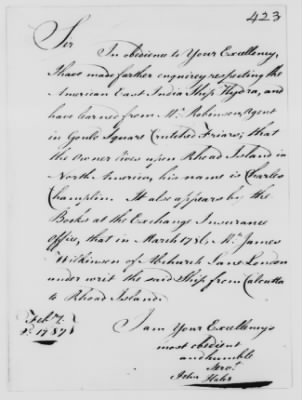 423
Sir
In obedience to Your Excellency,
I have made farther enquirey respecting the
American East India Ship Hydra, and
have learned from Mr. Robinson, Agent
in Gould Square Crutched Friars; that
the Owner lives upon Rhoad Island in
North America, his name is Charles
Champlin. It also appears by the
Books at the Exchange Insurance
Office, that in March 1786, Mr. James
Wilkinson of Abchurch Lane London
under writ the said Ship from Calcutta
to Rhoad Island.
I am Your Excellency's
most obedient
and humble
Servt.
John
Feby.
1787